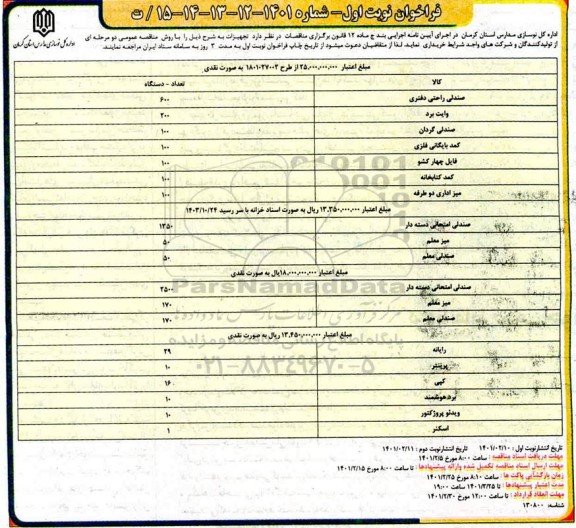 فراخوان نوبت اول- شماره ۱۴۰۱-۱۲-۱۳-۱۴-۱۵/ ت
اداره کل نوسازی مدارس استان کرمان
اداره کل نوسازی مدارس استان کرمان در اجرای آیین نامه اجرایی بند ج ماده ۱۲ قانون برگزاری مناقصات در نظر دارد تجهیزات به شرح ذیل را با روش مناقصه عمومی دو مرحله ای
از تولیدکنندگان و شرکت های واجد شرایط خریداری نماید. لذا از متقاضیان دعوت میشود از تاریخ چاپ فراخوان نوبت اول به مدت ۳ روز به سامانه ستاد ایران مراجعه نمایند.
مبلغ اعتبار ۲۵،۰۰۰،۰۰۰،۰۰۰ از طرح ۱۸۰۱۰۲۷۰۰۲ به صورت نقدی
کالا تعداد - دستگاه
صندلی راحتی دفتری ۶۰۰
وایت برد ۲۰۰
صندلی گردان ۱۰۰
کمد بایگانی فلزی ۱۰۰
فایل چهار کشو ۱۰۰
کمد کتابخانه ۱۰۰
میز اداری دو طرفه ۱۰۰
مبلغ اعتبار ۱۳،۳۵۰،۰۰۰،۰۰۰ ریال به صورت اسناد خزانه با سر رسید ۱۴۰۳/۱۰/۲۴
صندلی امتحانی دسته دار ۱۳۵۰
میز معلم ۵۰
صندلی معلم ۵۰
مبلغ اعتبار ۱۸،۰۰۰،۰۰۰،۰۰۰ریال به صورت نقدی
صندلی امتحانی دسته دار ۲۵۰۰
میز معلم ۱۷۰
صندلی معلم ۱۷۰
مبلغ اعتبار ۱۳،۴۵۰،۰۰۰،۰۰۰ ریال به صورت نقدی
رایانه ۲۹
پرینتر ۱۰
کپی ۱۶
بردهوشمند ۱۰
ویدئو پروژکتور ۱۰
اسکنر ۱
ParsNamadData
۰۲۱-۸۸۳۴۹۶۷۰-۵
تاریخ انتشارنوبت اول : ۱۴۰۱/۰۲/۱۰ تاریخ انتشارنوبت دوم : ۱۴۰۱/۰۲/۱۱
مهلت دریافت اسناد مناقصه : ساعت ۸:۰۰ مورخ ۱۴۰۱/۲/۵
مهلت ارسال اسناد مناقصه تکمیل شده وارائه پیشنهادها : تا ساعت ۸:۰۰ مورخ ۱۴۰۱/۲/۱۵
زمان بازگشایی پاکت ها : ساعت ۸:۱۰ مورخ ۱۴۰۱/۲/۲۵
مدت اعتبار پیشنهادها : تا ۱۴۰۱/۳/۲۵ ساعت ۱۹:۰۰
مهلت انعقاد قرارداد : تا ساعت ۱۲:۰۰ مورخ ۱۴۰۱/۲/۳۰
شناسه: ۱۳۰۸۰۰